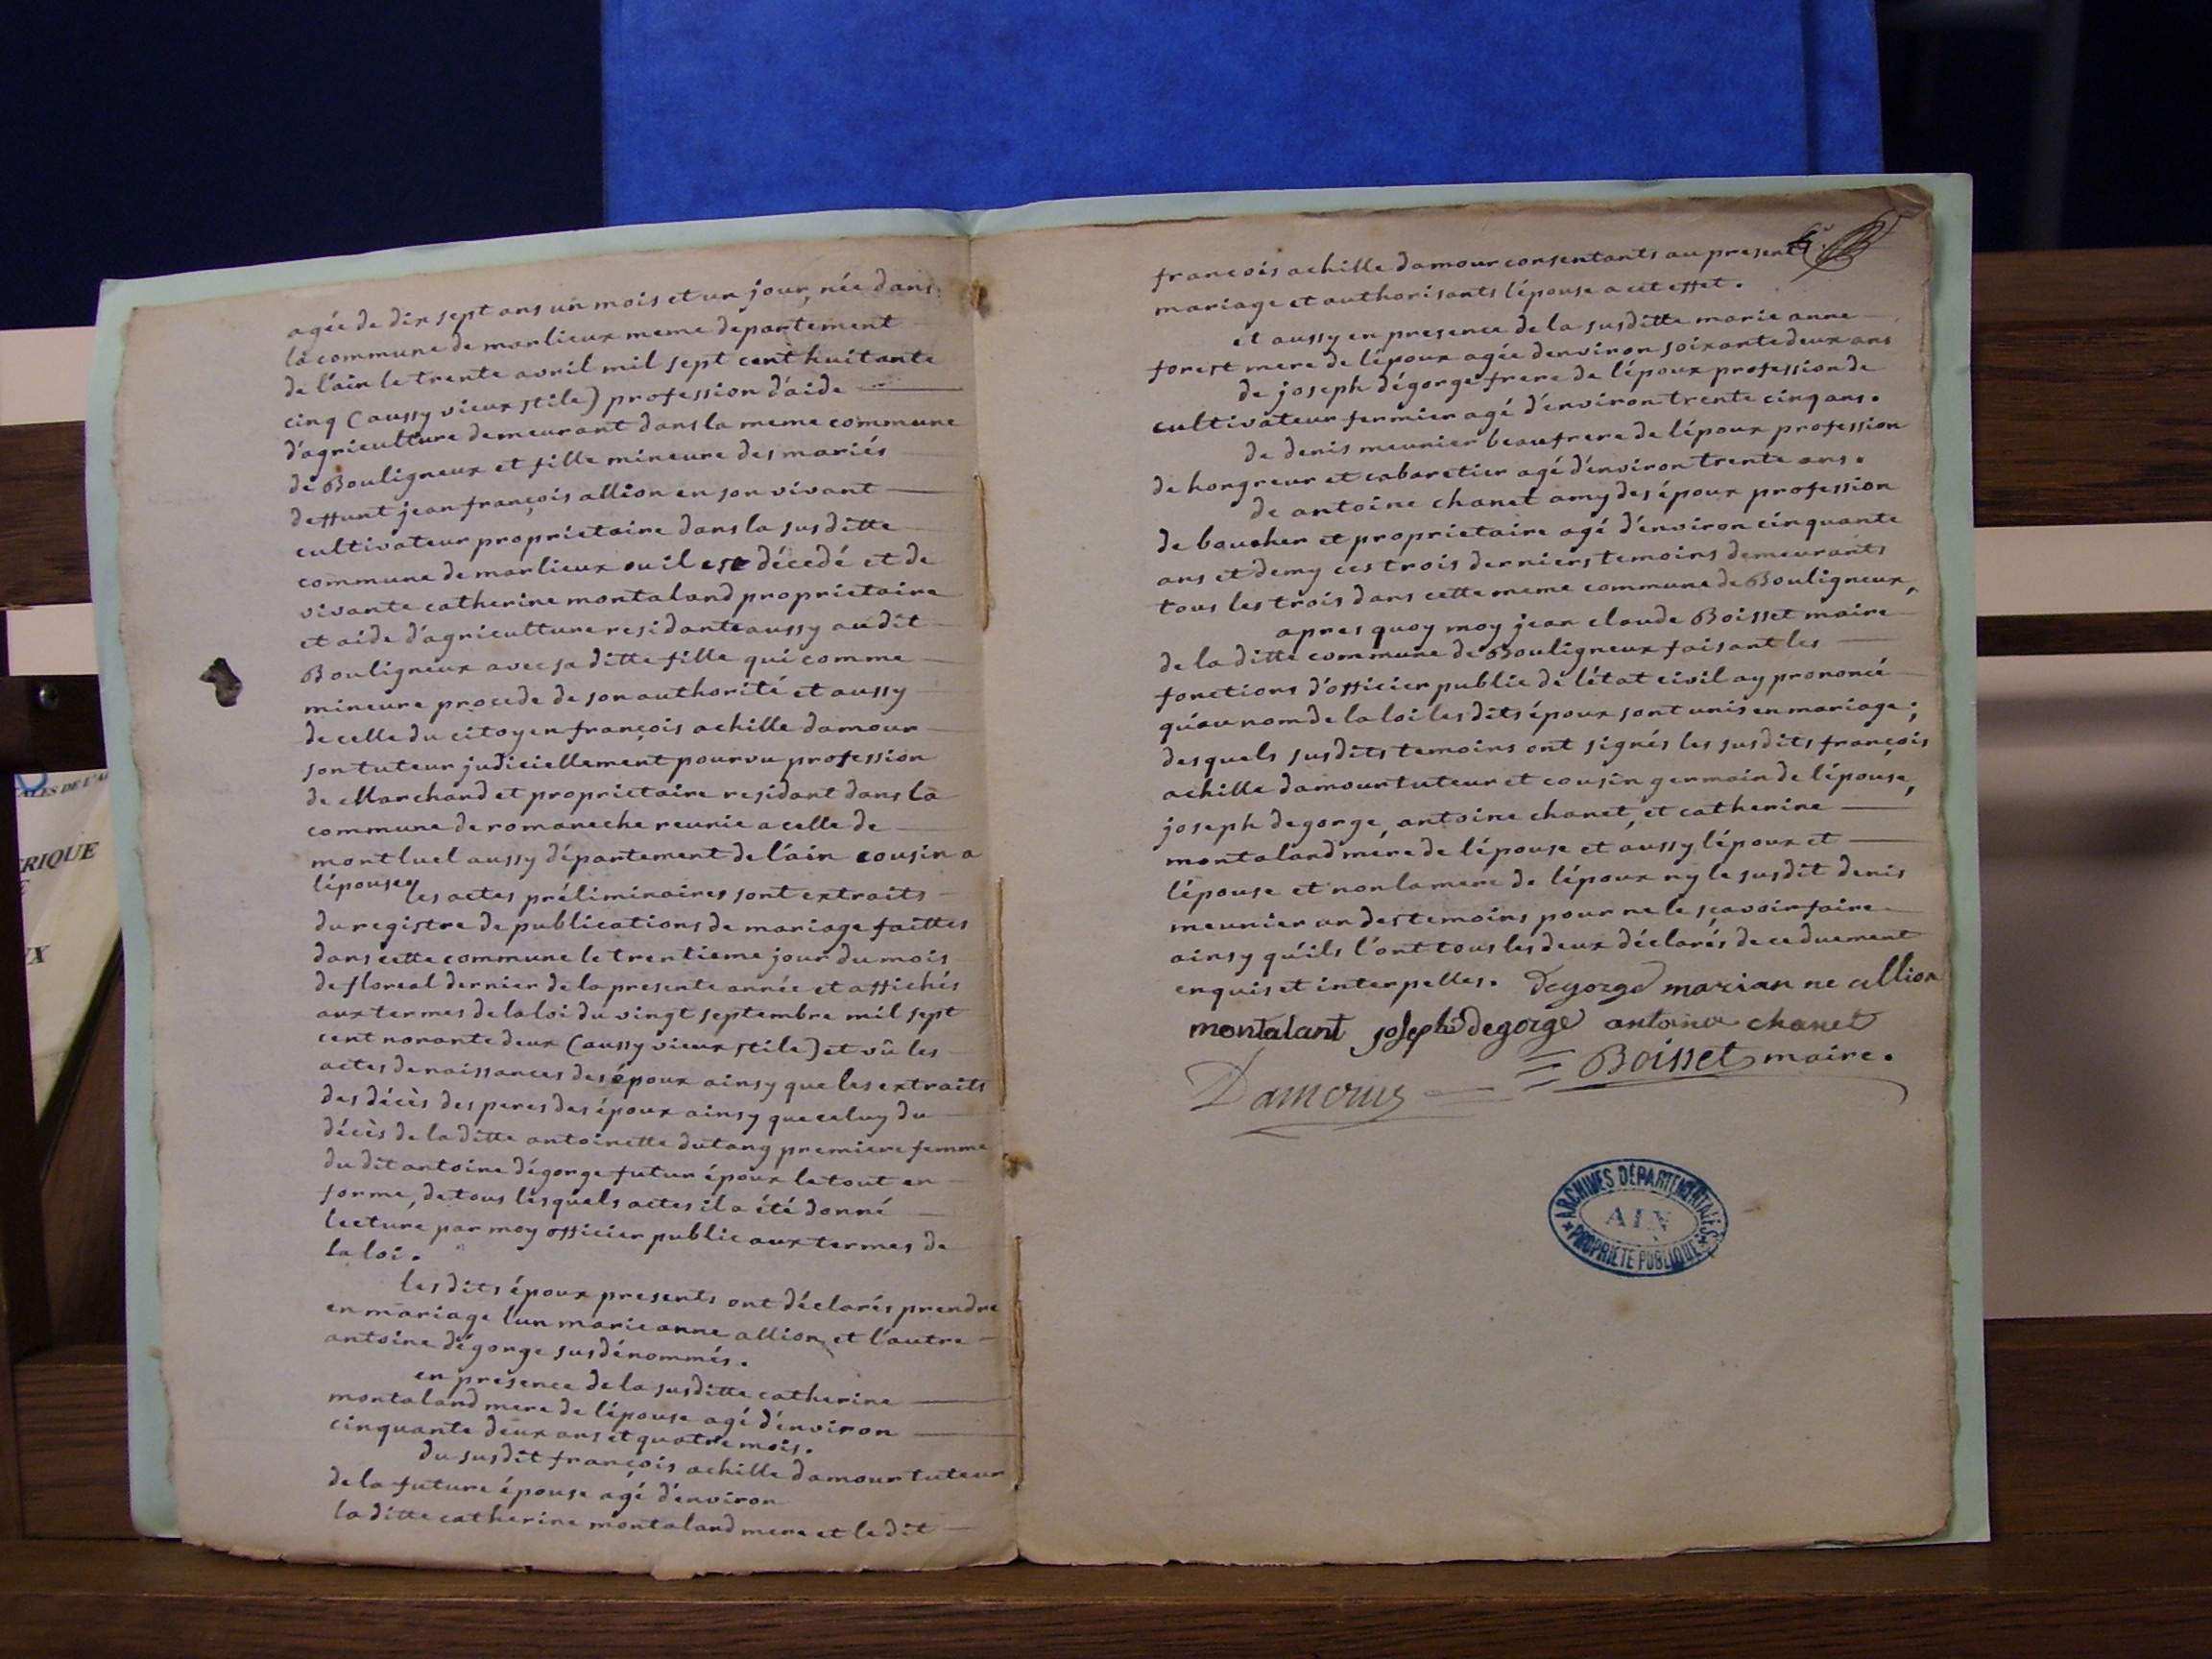 agée de dix sept ans un mois et un jour, née dans
la commune de marlieux meme departement
de l'ain le trente avril mil sept cent huitante
cinq (aussy vieux stile) profession d'aide
d'agriculture demeurant dans la meme commune
de Bouligneux et fille mineure des mariés
deffunt jean françois allion en son vivant
cultivateur proprietaire dans la susditte
commune de marlieux ou il est décedé et de
vivante catherine montaland proprietaire
et aide d'agriculture residante aussy audit
Bouligneux avec sa ditte fille qui comme
mineure procede de son authorité et aussy
de celle du citoyen françois achille damour
son tuteur judiciellement pourvu profession
de Marchand et proprietaire residant dans la
commune de romaneche reunie a celle de
montluel aussy département de l'ain cousin a
l'épouse
les actes préliminaires sont extraits
du registre de publications de mariage faittes
dans cette commune le trentieme jour du mois
de floreal dernier de la presente année et affichés
aux termes de la loi du vingt septembre mil sept
cent nonante deux (aussy vieux stile) et vû les
actes de naissances des époux ainsy que les extraits
des décès des peres des époux ainsy que celuy du
décès de la ditte antoinette dutang premiere femme
du dit antoine dégorge futur époux le tout en
forme, de tous lesquels actes il a été donné
lecture par moy officier public aux termes de
la loi.
les dits époux presents ont déclarés prendre
en mariage l'un marie anne allion et l'autre
antoine dégorge susdénommés.
en presence de la susditte catherine
montaland mere de l'épouse agé d'environ
cinquante deux ans et quatre mois.
du susdit françois achille damour tuteur
de la future épouse agé d'environ
la ditte catherine montaland mere et le dit
françois achille damour consentants au present
mariage et authorisants l'épouse a cet effet.
et aussy en presence de la susditte marie anne
forest mere de l'époux agée d'environ soixante deux ans
de joseph dégorge frere de l'époux profession de
cultivateur fermier agé d'environ trente cinq ans.
de denis meunier beaufrere de l'époux profession
de hongreur et cabaretier agé d'environ trente ans.
de antoine chanet amy des époux profession
de boucher et proprietaire agé d'environ cinquante
ans et demy ces trois derniers temoins demeurants
tous les trois dans cette meme commune de Bouligneux,
apres quoy moy jean claude Boisset maire
de la ditte commune de Bouligneux faisant les
fonctions d'officier public de l'état civil ay prononcé
qu'au nom de la loi les dits époux sont unis en mariage;
desquels susdits temoins ont signés les susdits françois
achille damour tuteur et cousin germain de l'épouse,
joseph degorge, antoine chanet, et catherine
montaland mere de l'épouse et aussy l'époux et
l'épouse et non la mere de l'époux ny le susdit denis
meunier un des temoins pour ne le sçavoir faire
ainsy qu'ils l'ont tous les deux déclarés de ce duement
enquis et interpellés. Degorge marian ne allion
montalant joseph degorge antoine chanet
Boisset maire.
Damour
ARCHIVES DÉPARTEMENTALES
AIN
PROPRIÉTÉ PUBLIQUE
RIQUE